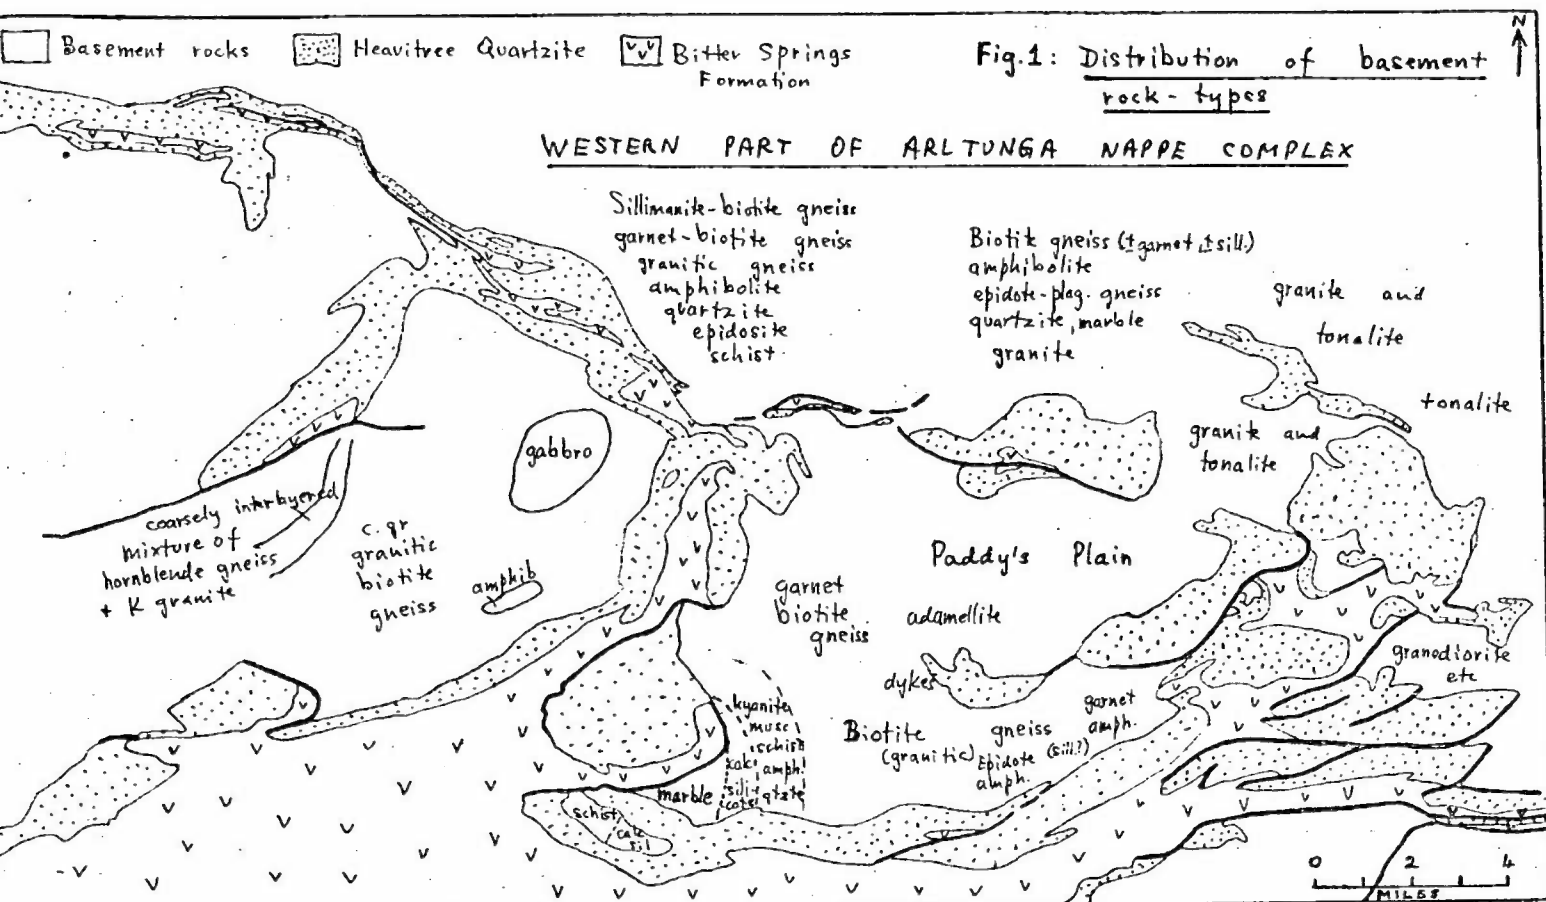 Basement rocks
Heavitree Quartzite
Bitter Springs
Formation
Fig.1: Distribution of basement
rock-types
N
WESTERN PART OF ARLTUNGA NAPPE COMPLEX
Sillimanite-biotite gneiss
garnet-biotite gneiss
granitic gneiss
amphibolite
quartzite
epidosite
schist
Biotite gneiss (±garnet, ±sill.)
amphibolite
epidote-plag. gneiss
quartzite, marble
granite
granite and
tonalite
tonalite
granite and
tonalite
gabbro
coarsely interlayered
mixture of
hornblende gneiss
+ K granite
c. gr
granitic
biotite
gneiss
amphib
Paddy's Plain
garnet
biotite
gneiss
adamellite
dykes
granodiorite
etc
kyanite
musc
schist
calc
amph.
sili-
cates
qtzte
marble
schist
calc
sil
Biotite gneiss
(granitic)
(sill?)
garnet
amph.
Epidote
amph.
0 2 4
MILES